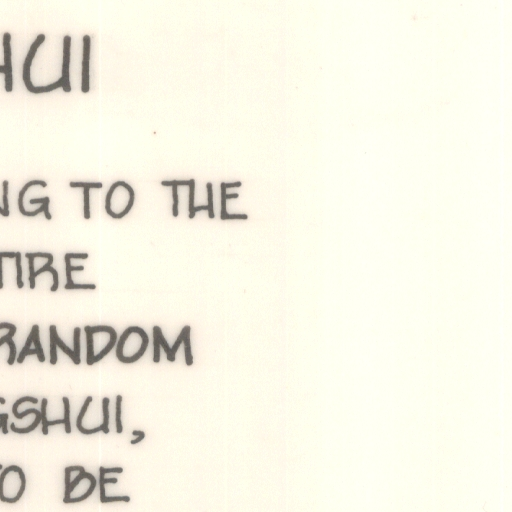 HUI
NG TO THE
TIRE
RANDOM
GSHUI,
TO BE